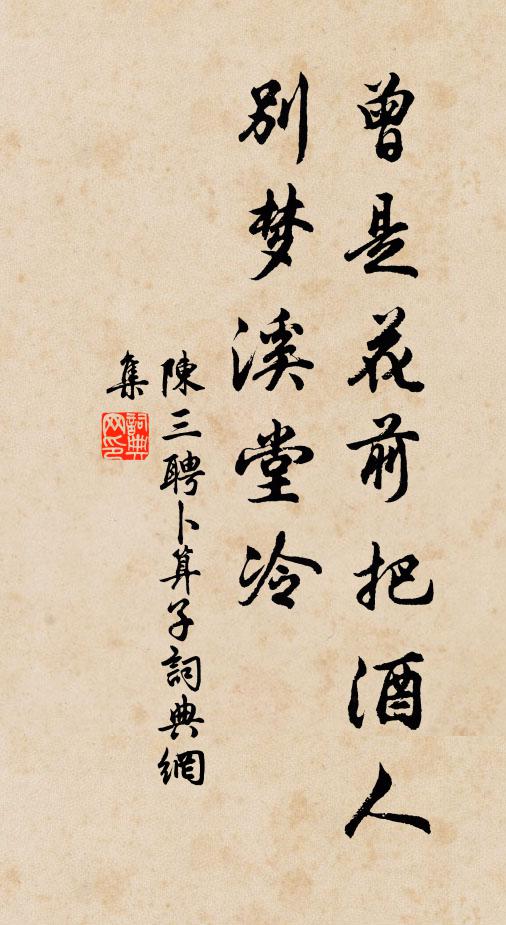 曾是花前把酒人
别梦溪堂冷
陳三聘卜算子詞典網
集
詞典网印